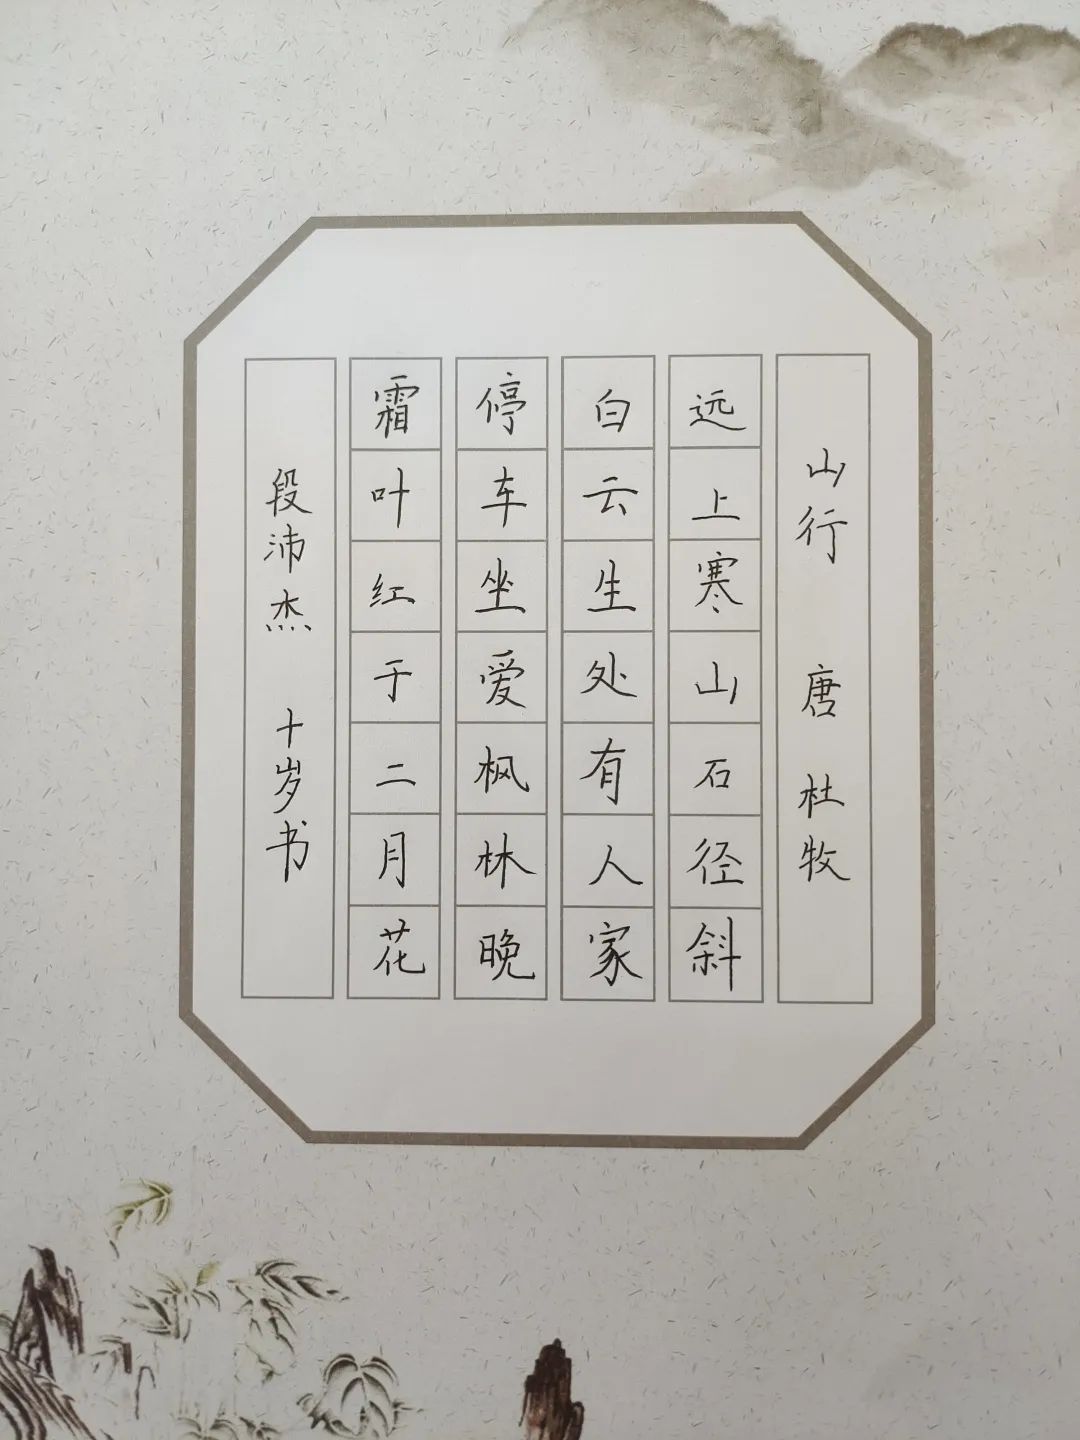 山行 唐 杜牧
远上寒山石径斜
白云生处有人家
停车坐爱枫林晚
霜叶红于二月花
段沛杰 十岁书